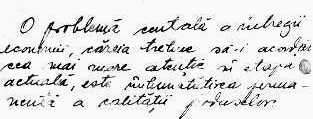 O problemă centrală a întregii
economii, căreia trebuie să-i acordăm
cea mai mare atenție în etapa
actuală, este îmbunătățirea perma-
nentă a calității produselor